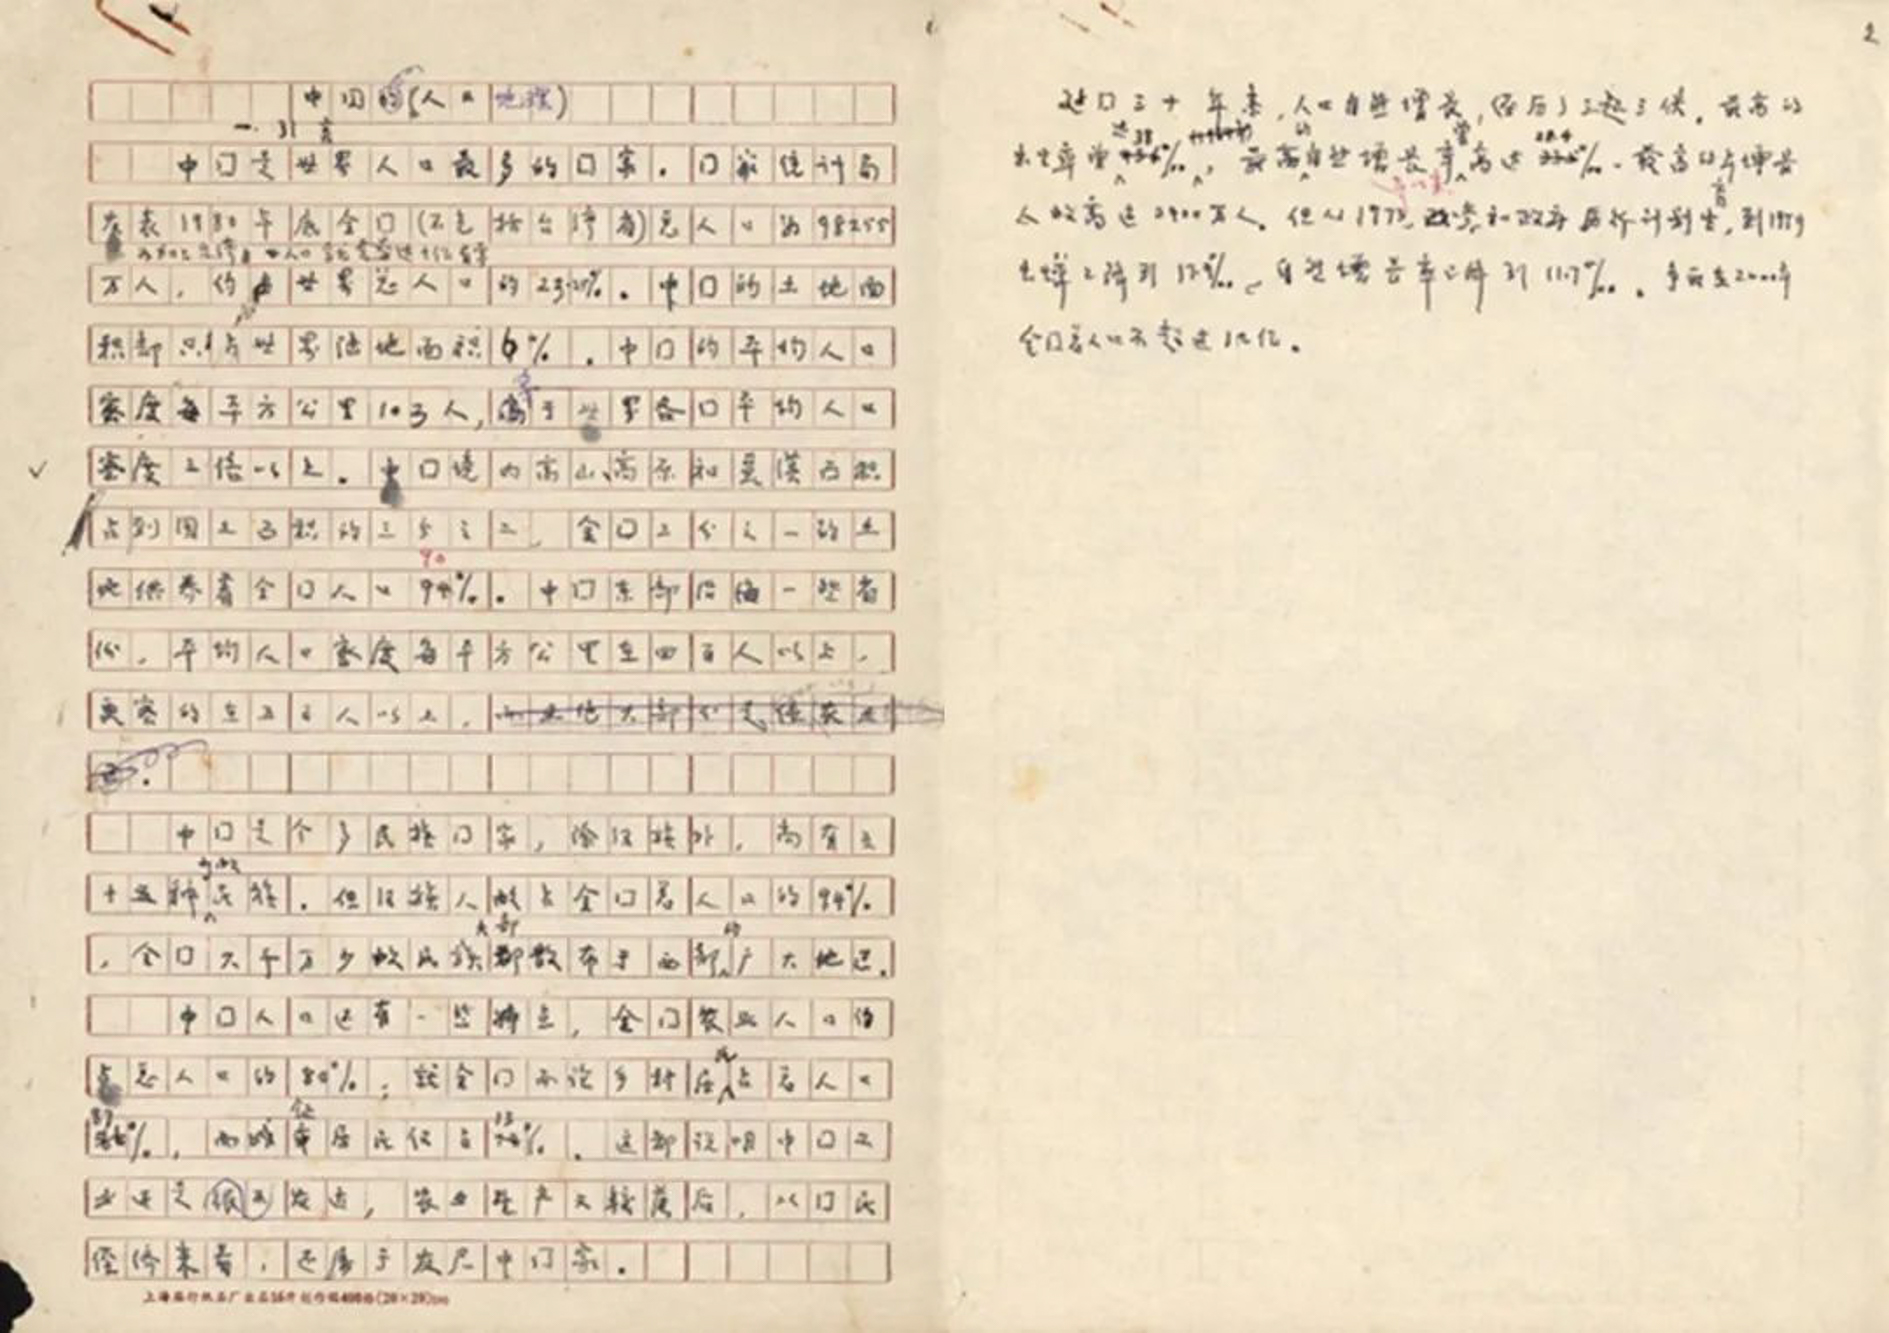 中国的(人口地理)
一. 引言
中国是世界人口最多的国家。国家统计局
发表1980年底全国(不包括台湾省)总人口为98255
万人，约占世界总人口的23%。中国的土地面
积却只占世界陆地面积6%。中国的平均人口
密度每平方公里103人，高于世界各国平均人口
密度二倍以上。中国境内高山、高原和荒漠面积
占到国土面积的三分之二，全国二分之一的土
90
地供养着全国人口94%。中国东部沿海一些省
份，平均人口密度每平方公里在四百人以上，
更密的在五百人以上，
中国是个多民族国家，除汉族外，尚有五
少数
十五种民族。但汉族人数占全国总人口的94%
大部 的
，全国六千万少数民族都散布于西部广大地区。
中国人口还有一些特点，全国农业人口约
民
占总人口的84%，就全国而论乡村居占总人口
87 镇 13
%，而城市居民仅占%。这都说明中国工
业还是很不发达，农业生产又较落后，从国民
经济来看，还属于发展中国家。
上海 纸品厂出品16开 稿400格(20×20)
2
建国三十年来，人口自然增长，经历了三起三伏。最高的
出生率曾达38‰，最高的自然增长率曾高达‰。最高的年增长
人数高达2900万人。但从1972，和政府厉行计划生育，到1979
出生率下降到17.9‰，自然增长率下降到11.7‰。争取在2000年
全国总人口不超过12亿。